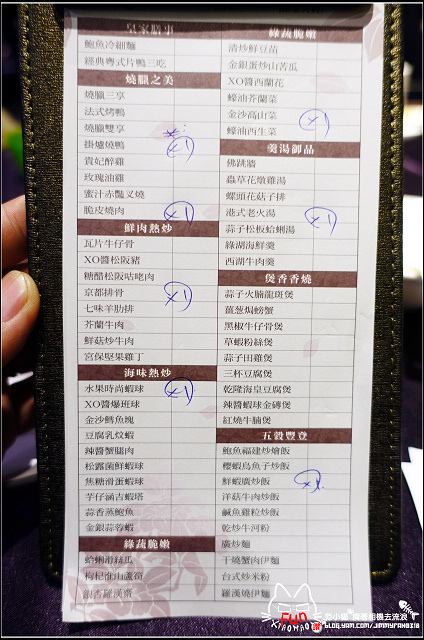 皇家膳事
鮑魚冷細麵
經典粵式片鴨三吃
燒臘之美
燒臘三享
法式烤鴨
燒臘雙享
掛爐燒鴨 x1
貴妃醉雞
玫瑰油雞
蜜汁赤豔叉燒
脆皮燒肉 x1
鮮肉熱炒
瓦片牛仔骨
XO醬松阪豬
糖醋松阪咕咾肉
京都排骨 x1
七味羊肋排
芥蘭牛肉
鮮菇炒牛肉
宮保堅果雞丁
海味熱炒
水果時尚蝦球 x1
XO醬爆班球
金沙鱈魚塊
豆腐乳炆蝦
辣醬蟹腿肉
松露菌鮮蝦球
焦糖滑蛋蝦球
芋仔涵古蝦塔
蒜香蒸鮑魚
金銀蒜蓉蝦
綠蔬脆嫩
蛤蜊滑絲瓜
枸杞淮山蘆筍
銀杏羅漢齋
綠蔬脆嫩
清炒鮮豆苗
金銀蛋炒山苦瓜
XO醬西蘭花
蠔油芥蘭菜
金沙高山菜 x1
蠔油西生菜
羹湯御品
佛跳牆
蟲草花燉雞湯
螺頭花菇子排
港式老火湯 x1
蒜子松板蛤蜊湯
綠湖海鮮羹
西湖牛肉羹
煲香香燒
蒜子火腩龍斑煲
薑蔥焗螃蟹
黑椒牛仔骨煲
草蝦粉絲煲
蒜子田雞煲
三杯豆腐煲
乾隆海皇豆腐煲
辣醬蝦球金磚煲
紅燒牛腩煲
五穀豐登
鮑魚福建炒燴飯
櫻蝦烏魚子炒飯
鮮蝦廣炒飯 x1
洋菇牛肉炒飯
鹹魚雞粒炒飯
乾炒牛河粉
廣炒麵
干燒蟹肉伊麵
台式炒米粉
羅漢燒伊麵
FUN